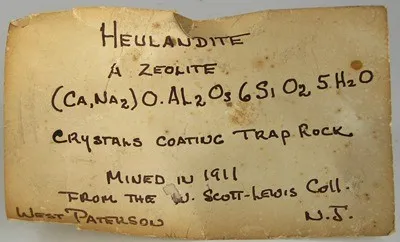 HEULANDITE
A ZEOLITE
(CA,NA2)O.AL2O3 6SiO2 5H2O
CRYSTALS COATING TRAP ROCK
MINED IN 1911
FROM THE W. SCOTT-LEWIS COLL.
WEST PATERSON N.J.